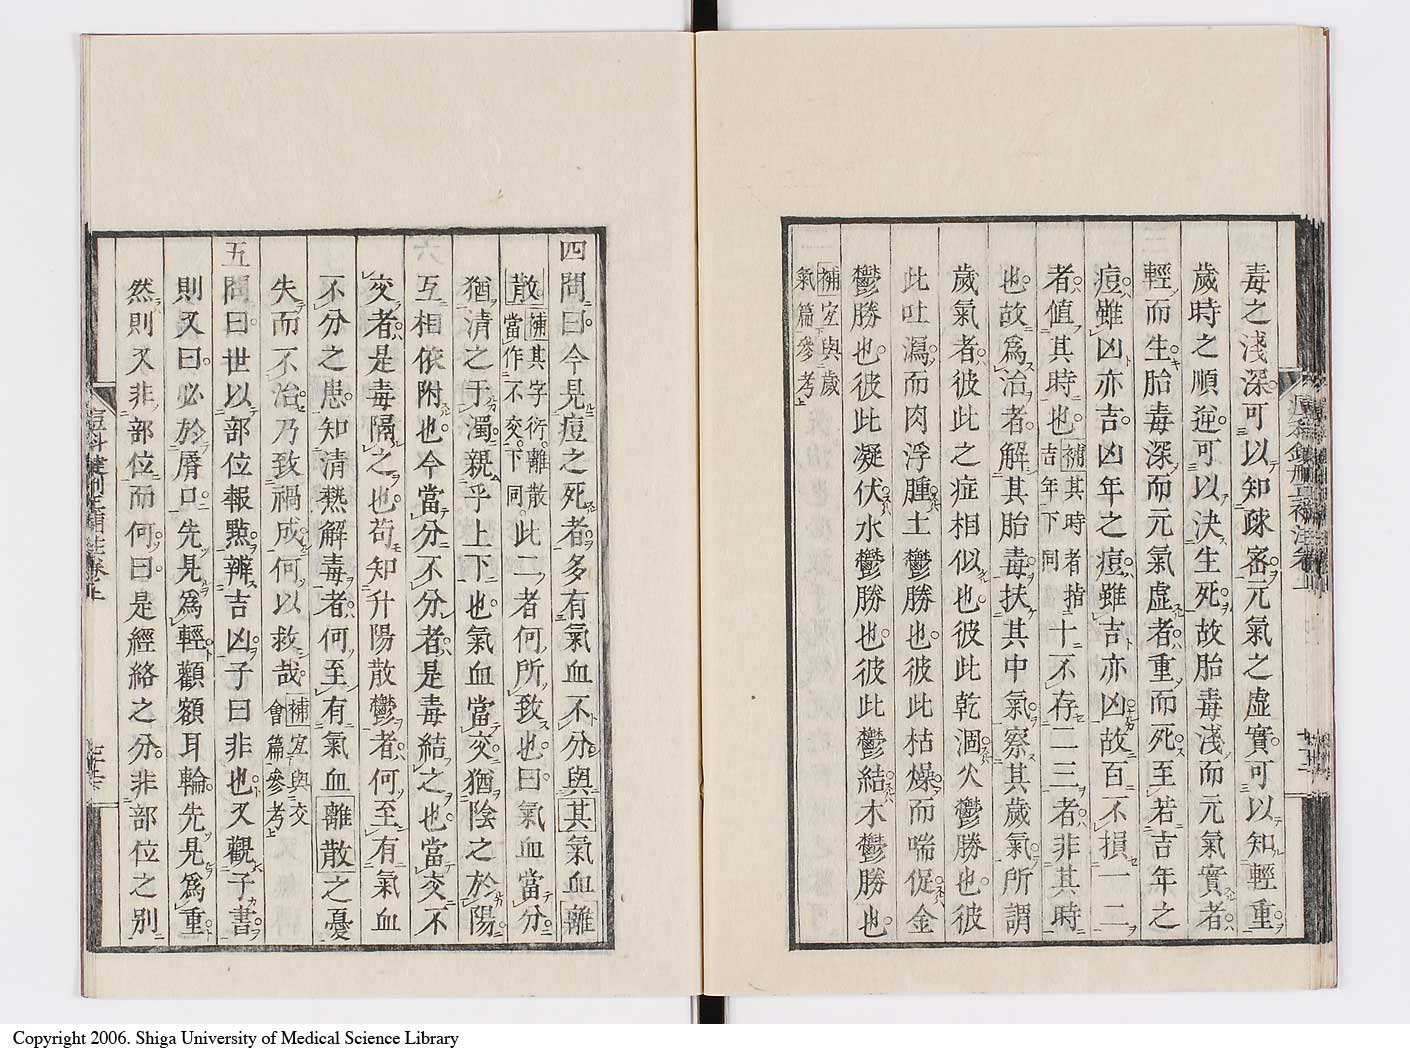 毒之淺深可以知疎密元氣之虛實可以知輕重
歲時之順逆可以決生死故胎毒淺而元氣實者
輕而生胎毒深而元氣虛者重而死至若吉年之
痘雖凶亦吉凶年之痘雖吉亦凶故百不損一二
者值其時也補其時者指吉年下同十不存二三者非其時
也故為治者解其胎毒扶其中氣察其歲氣所謂
歲氣者彼此之症相似也彼此乾涸火鬱勝也彼
此吐瀉而肉浮腫土鬱勝也彼此枯燥而喘促金
鬱勝也彼此凝伏水鬱勝也彼此鬱結木鬱勝也
補宜與歲氣篇參考
四問曰今見痘之死者多有氣血不分與其氣血離
散補其字衍離散當作不交下同此二者何所致也曰氣血當分
猶清之于濁親乎上下也氣血當交猶陰之於陽
互相依附也今當分不分者是毒結之也當交不
交者是毒隔之也苟知升陽散鬱者何至有氣血
不分之患知清熱解毒者何至有氣血離散之憂
失而不治乃致禍成何以救哉補宜與交會篇參考
五問曰世以部位報點辨吉凶子曰非也又觀子書
則又曰必於唇口先見為輕顴額耳輪先見為重
然則又非部位而何曰是經絡之分非部位之別
Copyright 2006. Shiga University of Medical Science Library